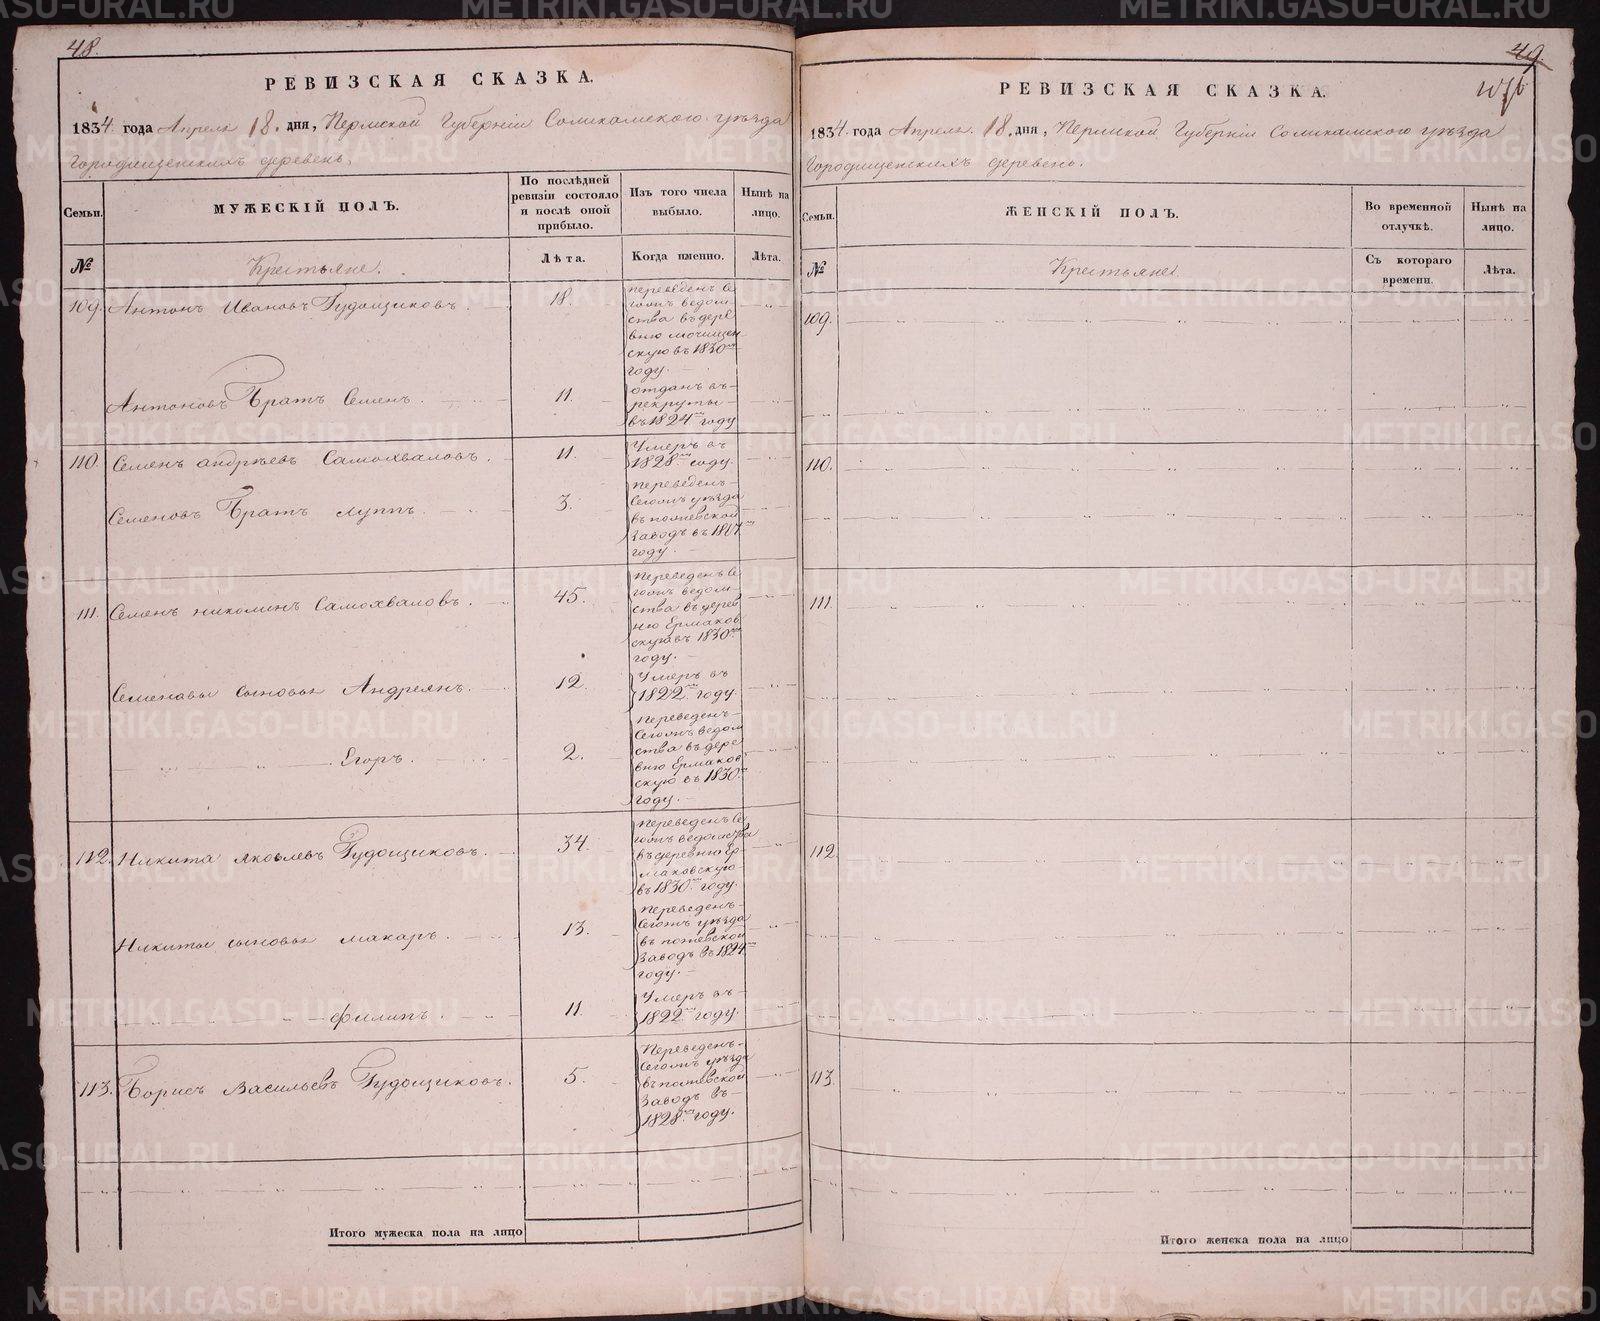 48.
РЕВИЗСКАЯ СКАЗКА.
1834. года Апреля 18. дня, Пермской Губерніи Соликамского уѣзда
Городищенскихъ деревень.
Семьи.
МУЖЕСКІЙ ПОЛЪ.
По послѣдней
ревизіи состояло
и послѣ оной
прибыло.
Изъ того числа
выбыло.
Нынѣ на
лицо.
№
Крестьяне.
Лѣта.
Когда именно.
Лѣта.
109. Антонъ Ивановъ Гудощиковъ. 18.
переведенъ Се
гожъ ведом-
ства въ дере
вню
скую въ 1830мъ
году.
Антоновъ Братъ Семенъ. 11.
отданъ въ
рекруты
въ 1824мъ году
110. Семенъ андрѣевъ Самохваловъ. 11.
Умеръ въ
1828мъ году.
Семеновъ Братъ луппъ. 3.
переведенъ
Сегожъ уѣзда
въ пожевской
Заводъ въ 1817мъ
году.
111. Семенъ николинъ Самохваловъ. 45.
Переведенъ Се
гожъ ведом-
ства въ дерев
ню Ермаков
скую въ 1830мъ
году.
Семеновы сыновья Андреянъ. 12.
Умеръ въ
1822мъ году.
Егоръ. 2.
Переведенъ
Сегожъ ведом
ства въ дере
вню Ермаков
скую въ 1830мъ
году.
112. Никита яковлевъ Гудощиковъ. 34.
Переведенъ Се
гожъ ведомства
въ деревню Ер-
маковскую
въ 1830мъ году.
Никиты сыновья макаръ. 13.
Переведенъ
Сегожъ уѣзда
въ пожевской
Заводъ въ 1824мъ
году.
филипъ. 11.
Умеръ въ
1822мъ году.
113. Борисъ Васильевъ Гудощиковъ. 5.
Переведенъ
Сегожъ уѣзда
въ пожевской
Заводъ въ
1828мъ году.
Итого мужеска пола на лицо
49.
РЕВИЗСКАЯ СКАЗКА.
1834. года Апреля 18. дня, Пермской Губерніи Соликамского уѣзда
Городищенскихъ деревень.
Семьи.
ЖЕНСКІЙ ПОЛЪ.
Во временной
отлучкѣ.
Нынѣ на
лицо.
№
Крестьяне.
Съ котораго
времени.
Лѣта.
109.
110.
111.
112.
113.
Итого женска пола на лицо
METRIKI.GASO-URAL.RU